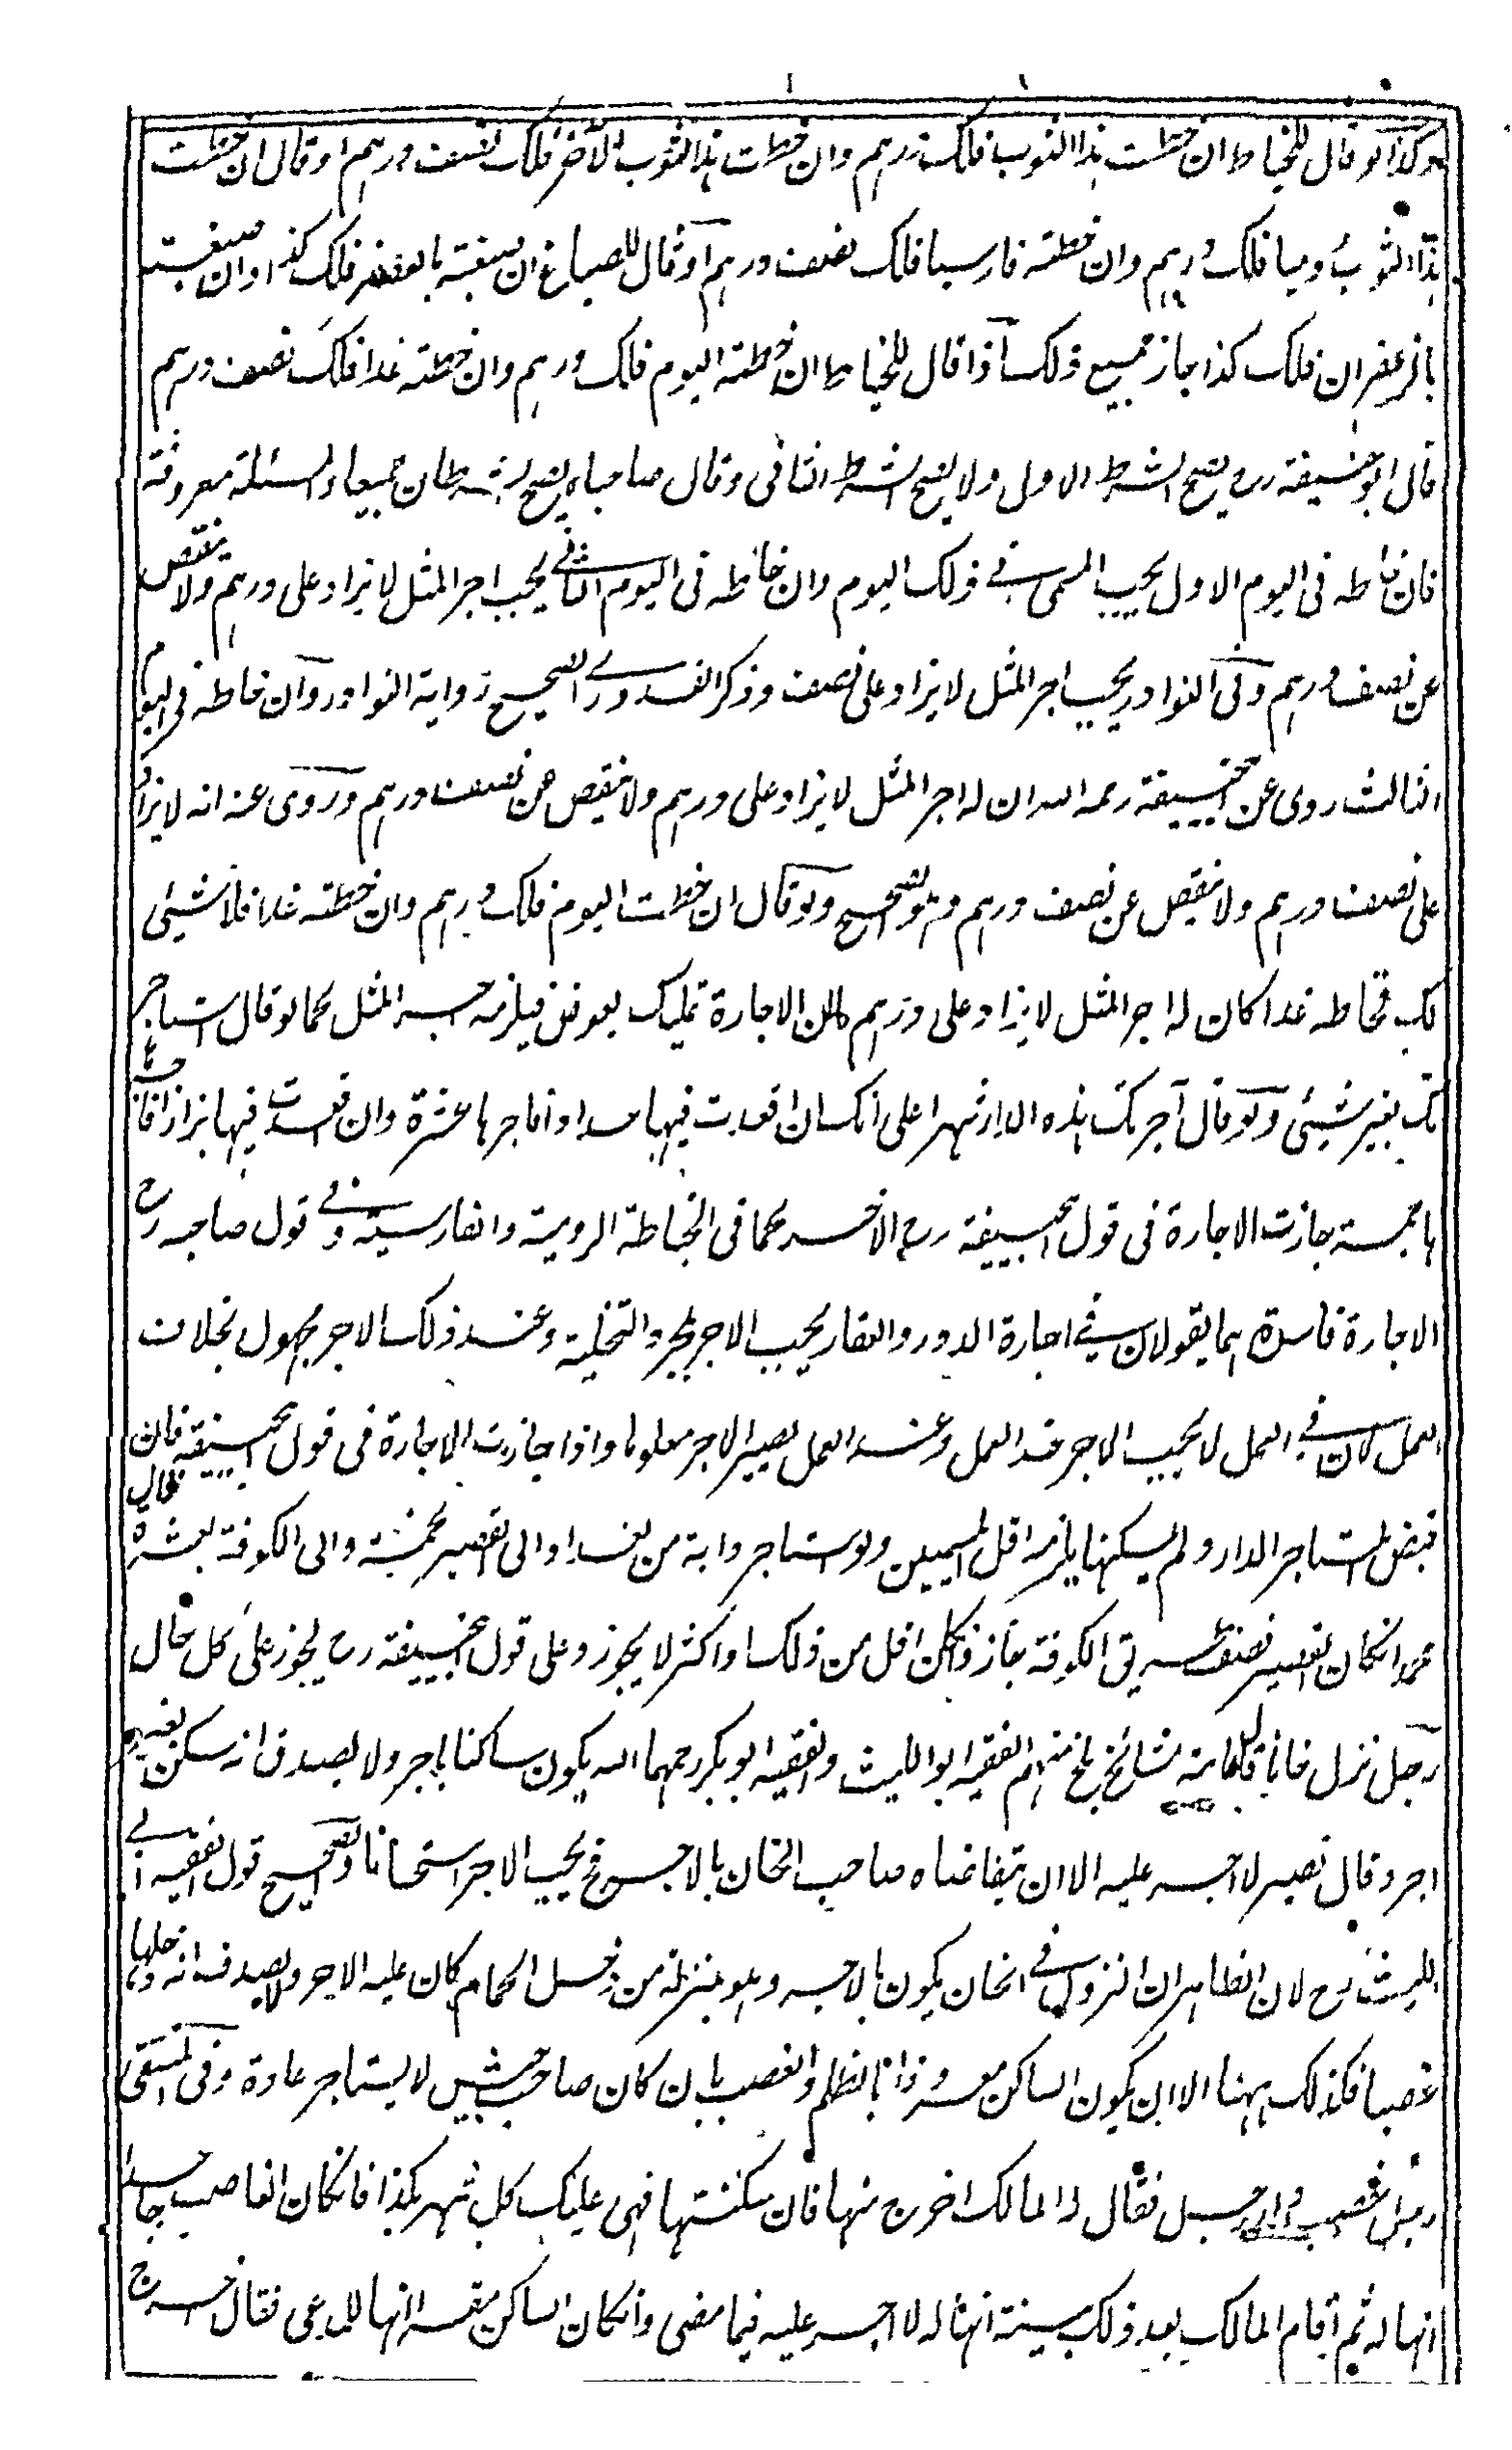 وكذا لو قال للخياط ان خطت هذا الثوب فلك درهم وان خطت هذا الثوب الآخر فلك نصف درهم او قال ان خطت
هذا الثوب روميا فلك درهم وان خطته فارسيا فلك نصف درهم او قال للصباغ ان صبغته بالعصفر فلك كذا وان صبغته
بالزعفران فلك كذا جاز جميع ذلك اذا قال للخياط ان خطته اليوم فلك درهم وان خطته غدا فلك نصف درهم
قال ابو حنيفة رح يصح الشرط الاول ولا يصح الشرط الثانى وقال صاحباه يصح الشرطان جميعا والمسئلة معروفة
فان خاطه فى اليوم الاول يجب المسمى فى ذلك اليوم وان خاطه فى اليوم الثانى يجب اجر المثل لا يزاد على درهم ولا ينقص
عن نصف درهم وفى النوادر يجب اجر المثل لا يزاد على نصف وذكر القدورى الصحيح رواية النوادر وان خاطه فى اليوم
الثالث روى عن ابيحنيفة رحمه الله ان له اجر المثل لا يزاد على درهم ولا ينقص عن نصف درهم وروى عنه انه لا يزاد
على نصف درهم ولا ينقص عن نصف درهم وهو الصحيح ولو قال ان خطت اليوم فلك درهم وان خطته غدا فلا شيئ
لك فخاطه غدا كان له اجر المثل لا يزاد على درهم لان الاجارة تمليك بعوض فيلزمه اجر المثل كما لو قال استاجر
تك بغير شيئ ولو قال آجرتك هذه الدار شهرا على انك ان اقعدت فيها حدادا فاجرها عشرة وان قعدت فيها بزازا فاجر
ها خمسة جازت الاجارة فى قول ابيحنيفة رح الآخر كما فى الخياطة الرومية والفارسية وفى قول صاحبيه رح
الاجارة فاسدة هما يقولان فى اجارة الدور والعقار يجب الاجر بمجرد التخلية وعند ذلك الاجر مجهول بخلاف
العمل لان فى العمل لا يجب الاجر عند العمل وعند العمل يصير الاجر معلوما واذا جازت الاجارة فى قول ابيحنيفة فان
قبض المستاجر الدار ولم يسكنها يلزمه اقل المسميين ولو استاجر دابة من بغداد الى القصير بخمسة والى الكوفة بعشرة قال
محمد انكان القصير نصف طريق الكوفة جاز وان كان اقل من ذلك او اكثر لا يجوز وعلى قول ابيحنيفة رح يجوز على كل حال
رجل نزل خانا قال عامة مشائخ بلخ منهم الفقيه ابو الليث والفقيه ابو بكر رحمهما الله يكون ساكنا باجر ولا يصدق انه سكن بغير
اجر وقال نصير لا اجر عليه الا ان يتقاضاه صاحب الخان بالاجر فح يجب الاجر استحسانا والصحيح قول الفقيه ابى
الليث رح لان الظاهر ان النزول فى الخان يكون بالاجر وهو بمنزلة من دخل الحمام كان عليه الاجر ولا يصدق انه دخلها
غصبا فكذلك ههنا الا ان يكون الساكن معروفا بالظلم والغصب بان كان صاحب جيش لا يستاجر عادة وفى المنتقى
رجل غصب دار رجل فقال له المالك اخرج منها فان سكنتها فهى عليك كل شهر بكذا فانكان الغاصب جاحدا
انها له ثم اقام المالك بعد ذلك بينة انها له لا اجر عليه فيما مضى وانكان الساكن مقرا انها للمدعى فقال اخرج